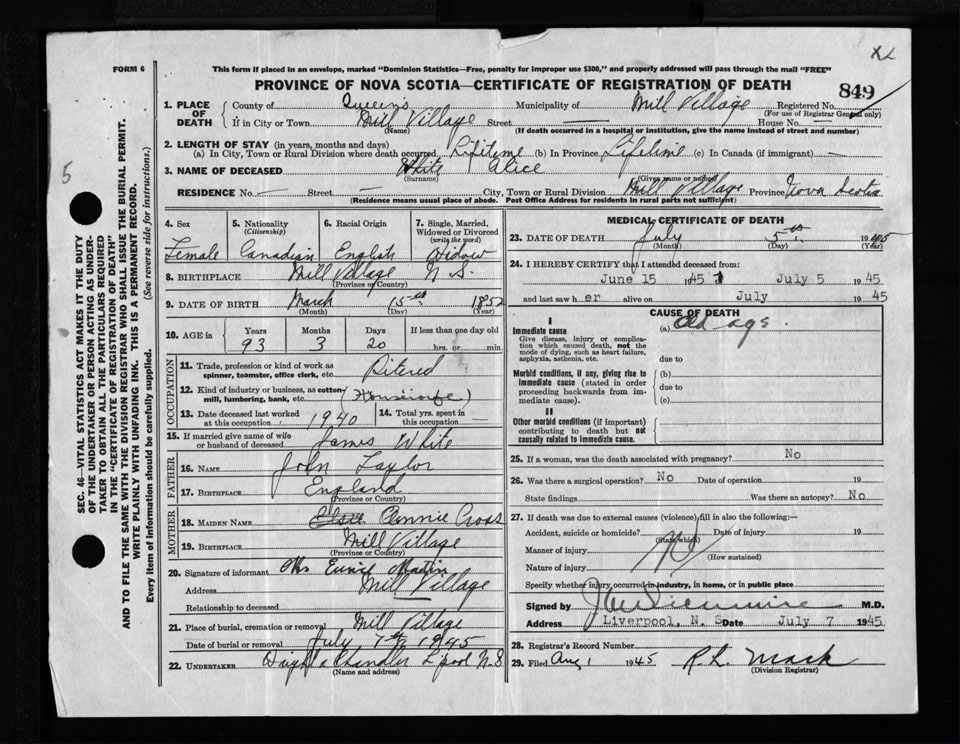 XL
FORM 6
This form if placed in an envelope, marked "Dominion Statistics—Free, penalty for improper use $300," and properly addressed will pass through the mail "FREE"
PROVINCE OF NOVA SCOTIA—CERTIFICATE OF REGISTRATION OF DEATH
849
5
SEC. 46—VITAL STATISTICS ACT MAKES IT THE DUTY
OF THE UNDERTAKER OR PERSON ACTING AS UNDER-
TAKER TO OBTAIN ALL THE PARTICULARS REQUIRED
IN THE "CERTIFICATE OF REGISTRATION OF DEATH"
AND TO FILE THE SAME WITH THE DIVISION REGISTRAR WHO SHALL ISSUE THE BURIAL PERMIT.
WRITE PLAINLY WITH UNFADING INK. THIS IS A PERMANENT RECORD.
Every item of information should be carefully supplied. (See reverse side for instructions.)
1. PLACE OF DEATH
County of Queens Municipality of Mill Village Registered No.
(For use of Registrar General only)
If in City or Town Mill Village Street — House No. —
(Name) (If death occurred in a hospital or institution, give the name instead of street and number)
2. LENGTH OF STAY (in years, months and days)
(a) In City, Town or Rural Division where death occurred Lifetime (b) In Province Lifetime (c) In Canada (if immigrant) —
3. NAME OF DECEASED White Alice
(Surname) (Given name or names)
RESIDENCE No. — Street — City, Town or Rural Division Mill Village Province Nova Scotia
(Residence means usual place of abode. Post Office Address for residents in rural parts not sufficient)
4. Sex 5. Nationality (Citizenship) 6. Racial Origin 7. Single, Married, Widowed or Divorced (write the word)
Female Canadian English Widow
8. BIRTHPLACE Mill Village N S.
(Province or Country)
9. DATE OF BIRTH March 15th 1852
(Month) (Day) (Year)
10. AGE in Years Months Days If less than one day old
93 3 20 hrs. or min.
OCCUPATION
11. Trade, profession or kind of work as spinner, teamster, office clerk, etc. Ritered
12. Kind of industry or business, as cotton-mill, lumbering, bank, etc. (Housewife)
13. Date deceased last worked at this occupation 1940 14. Total yrs. spent in this occupation —
15. If married give name of wife or husband of deceased James White
FATHER
16. NAME John Taylor
17. BIRTHPLACE England
(Province or Country)
MOTHER
18. MAIDEN NAME Annie Cross
19. BIRTHPLACE Mill Village
(Province or Country)
20. Signature of informant Mrs Eunice Martin
Address Mill Village
Relationship to deceased —
21. Place of burial, cremation or removal Mill Village
Date of burial or removal July 7th 1945
22. UNDERTAKER Chandler Lpool N.S
(Name and address)
MEDICAL CERTIFICATE OF DEATH
23. DATE OF DEATH July 5th 1945
(Month) (Day) (Year)
24. I HEREBY CERTIFY that I attended deceased from:
June 15 1945 July 5 1945
and last saw h er alive on July 1945
CAUSE OF DEATH
I
Immediate cause (a) Old age.
Give disease, injury or complica-
tion which caused death, not the
mode of dying, such as heart failure,
asphyxia, asthenia, etc. due to
Morbid conditions, if any, giving rise to (b)
immediate cause (stated in order due to
proceeding backwards from im-
mediate cause). (c)
II
Other morbid conditions (if important)
contributing to death but not
causally related to immediate cause.
25. If a woman, was the death associated with pregnancy? No
26. Was there a surgical operation? No Date of operation 19
State findings Was there an autopsy? No
27. If death was due to external causes (violence) fill in also the following:—
Accident, suicide or homicide? Date of injury 19
(State which)
Manner of injury
(How sustained)
Nature of injury
Specify whether injury occurred in industry, in home, or in public place
Signed by M.D.
Address Liverpool, N. S Date July 7 1945
28. Registrar's Record Number
29. Filed Aug 1 1945 R. L. Mack
(Division Registrar)